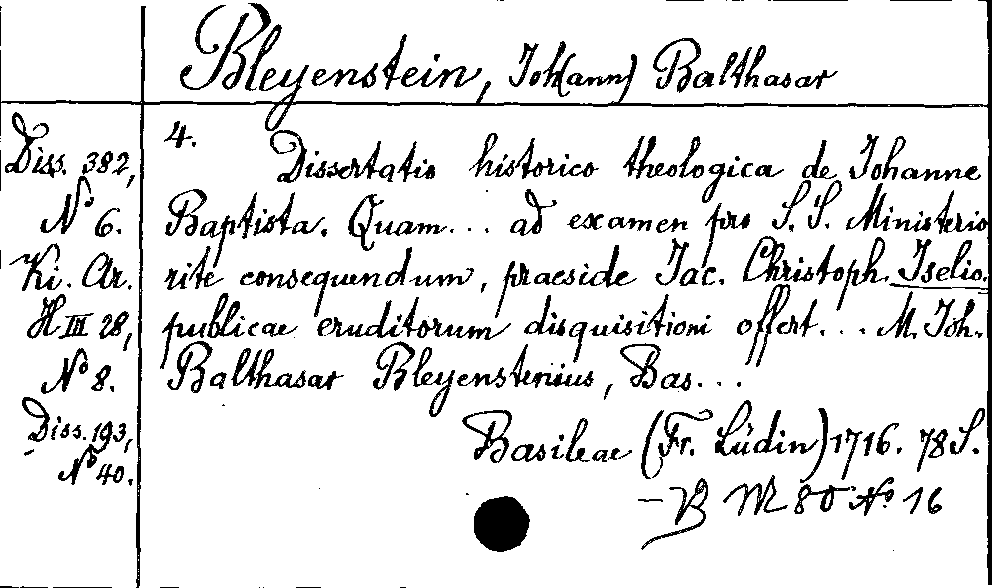 Bleyenstein, Joh(ann) Balthasar
Diss. 382,
No 6.
Ki. Ar.
H III 28,
No 8.
Diss. 193,
No 40.
4. Dissertatio historico theologica de Johanne
Baptista. Quam... ad examen pro S. S. Ministerio
rite consequendum, praeside Jac. Christoph. Iselio.
publicae eruditorum disquisitioni offert... M. Joh.
Balthasar Bleyensteinius, Bas...
Basileae (Fr. Lüdin) 1716. 78 S.
No 16